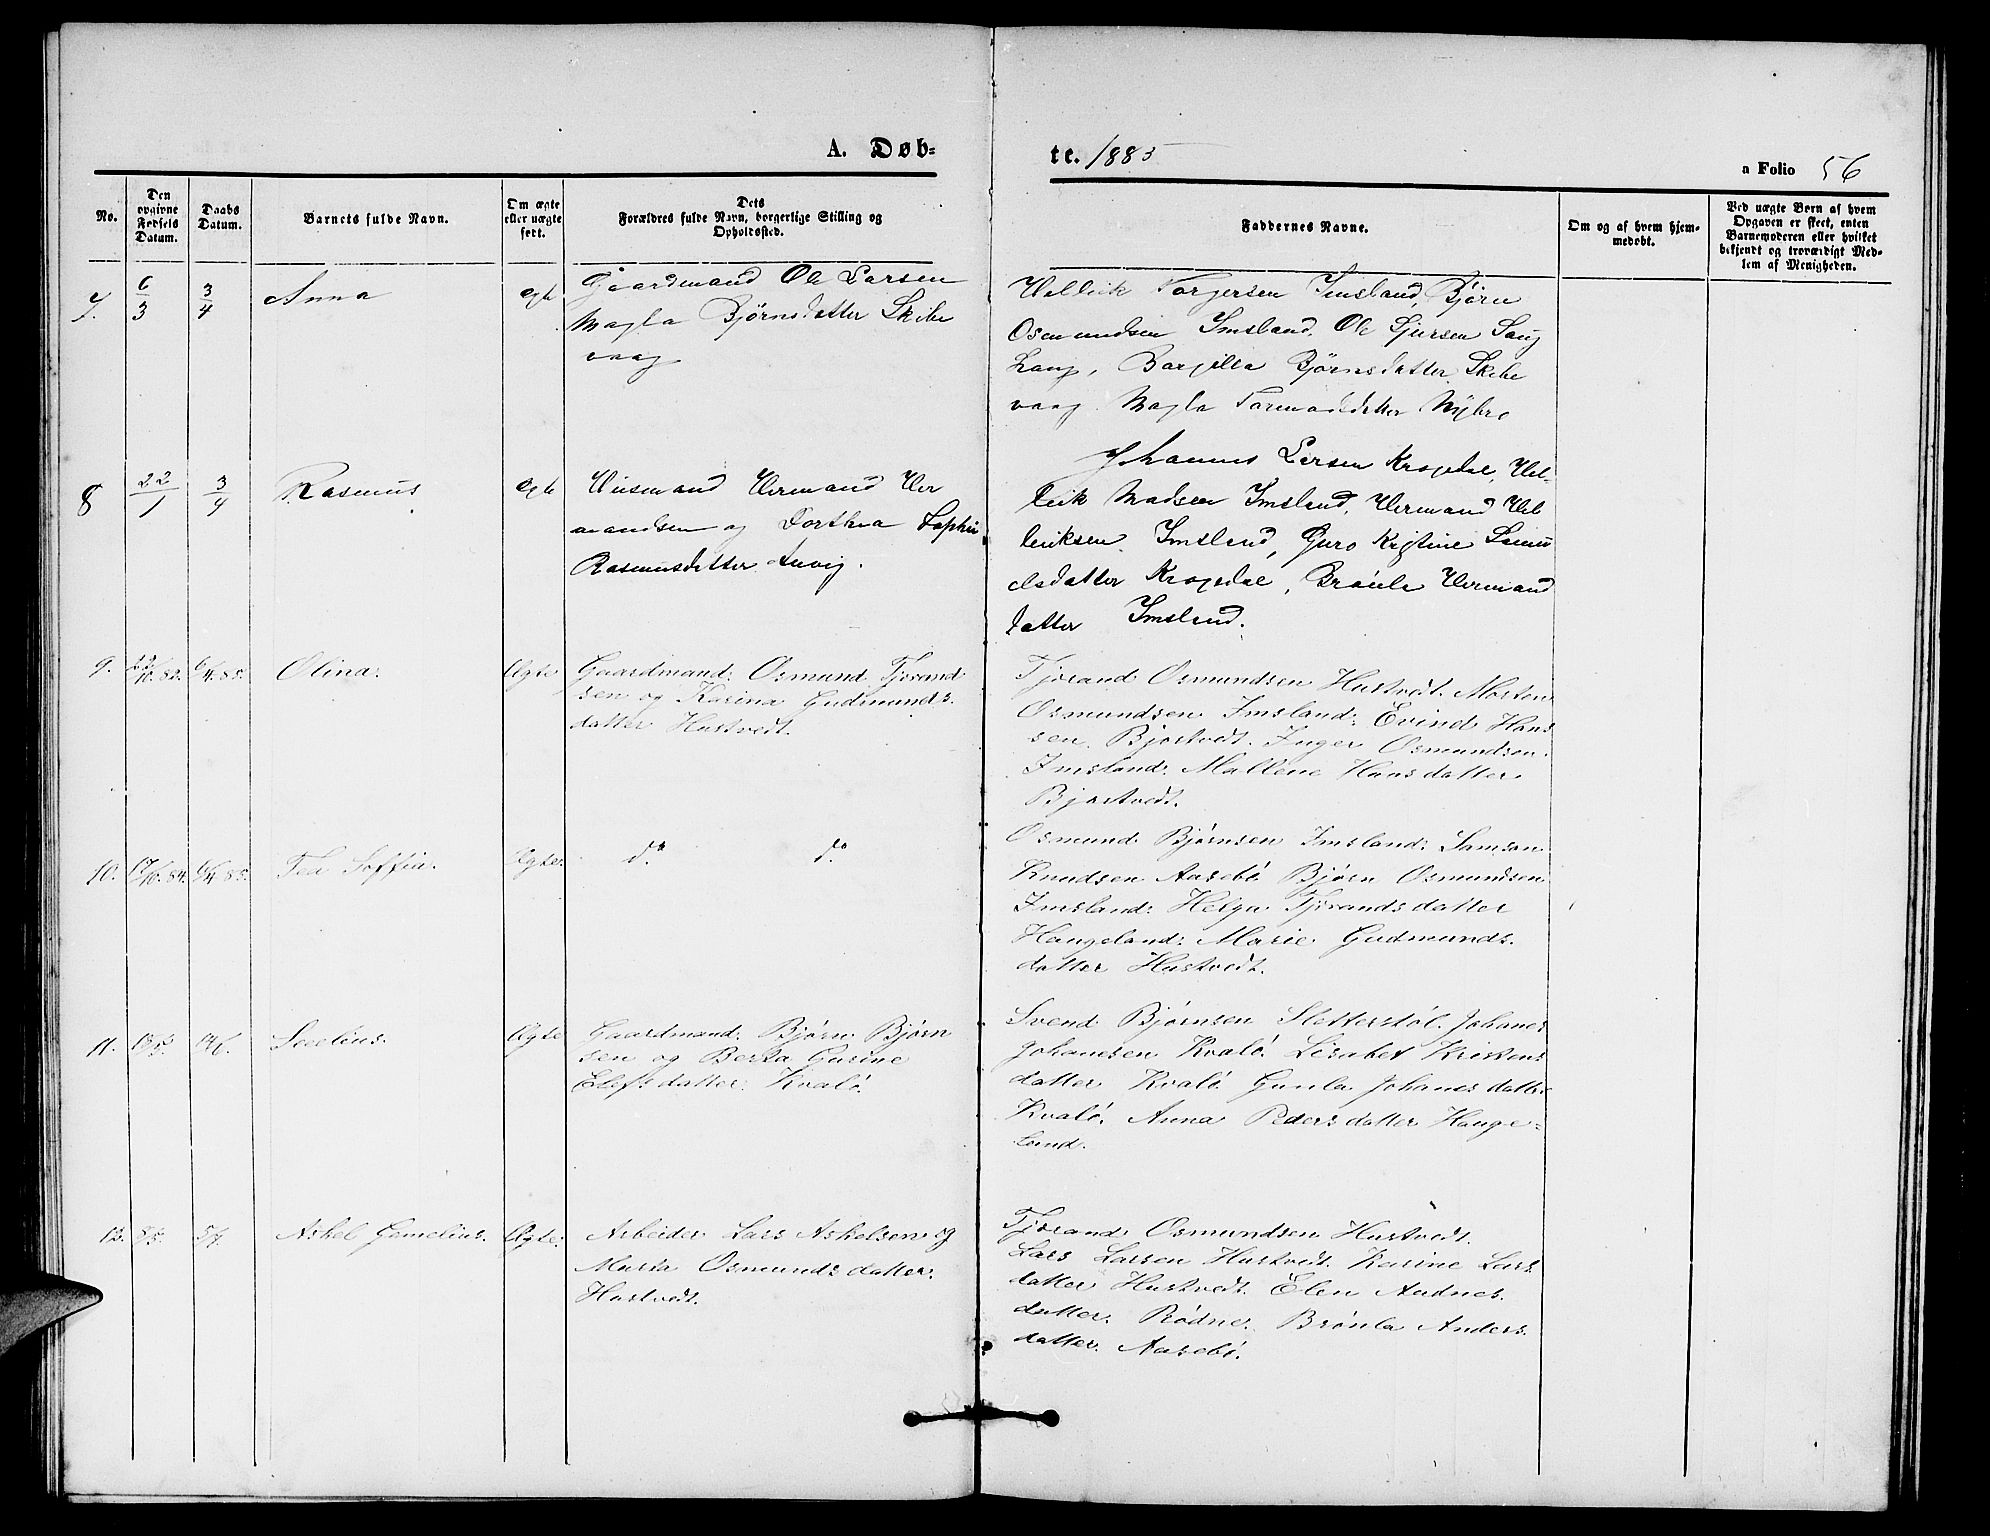 A. Døb-
te. 1885
a Folio 56
No.
Den opgivne Fødsels Datum.
Daabs Datum.
Barnets fulde Navn.
Om ægte eller uægte født.
Dets Forældres fulde Navn, borgerlige Stilling og Opholdssted.
Faddernes Navne.
Om og af hvem hjemmedøbt.
Ved uægte Børn af hvem Opgaven er skeet, enten Barnemoderen eller hvilket bekjendt og troværdigt Medlem af Menigheden.
7. 6/3 3/4 Anna egte
Gaardmand Ole Larsen
Magla Bjørnsdatter Skibe
vaag
Torgersen Imsland, Bjørn
Osmundsen Imsland, Ole Sjursen
Bjørnsdatter Skibe
vaag. Magla Nybro
8 22/1 3/4 Rasmus egte
Huusmand Hermand Her
mandsen og Dorthea Sophie
Rasmusdatter Anvig.
Johannes Larsen Kropdal, Hel-
leik Madsen Imsland, Hermand Hel
leiksen Imsland, Guro Kristine
elsdatter Kropdal, Brønla Hermand
datter Imsland.
9. 6/4.85. Olina. Ægte
Gaardmand: Osmund Tjørand
sen og Karina Gudmunds.
datter Hustvedt.
Tjørand Osmundsen Hustvedt. Morten
Osmundsen Imsland: Evind Hans
sen. Bjostvedt. Inger Osmundsen.
Imsland: Mallene Hansdatter.
Bjostvedt.
10. 17/6.84. 6/4.85. Tea Soffia. Ægte.
d.o d.o
Osmund Bjørnsen Imsland: Samson
Knudsen Aasebö Bjørn Osmundsen
Imsland: Helga Tjørandsdatter
Haugeland: Marie Gudmunds.
datter Hustvedt.
11. Ægte
Gaardmand: Bjørn Bjørn
sen og Berta Gurine
Elefsdatter: Kvalö.
Svend Bjørnsen Sletterstöl. Johanes
Johansen Kvalö. Lisabet
datter Kvalö Gunla Johanesdatter
Kvalö. Anna Pedersdatter Hauge-
land.
12. 8/5. 5/7. Askel Gemelius. Ægte.
Arbeider Lars Askelsen og
Marta Osmundsdatter.
Hustvedt.
Tjørand Osmundsen Hustvedt.
Lars Larsen Hustvedt. Karine Lars
datter Hustvedt. Elen Audnes.
datter. Rødne. Brønla Anders.
datter. Aasebö.